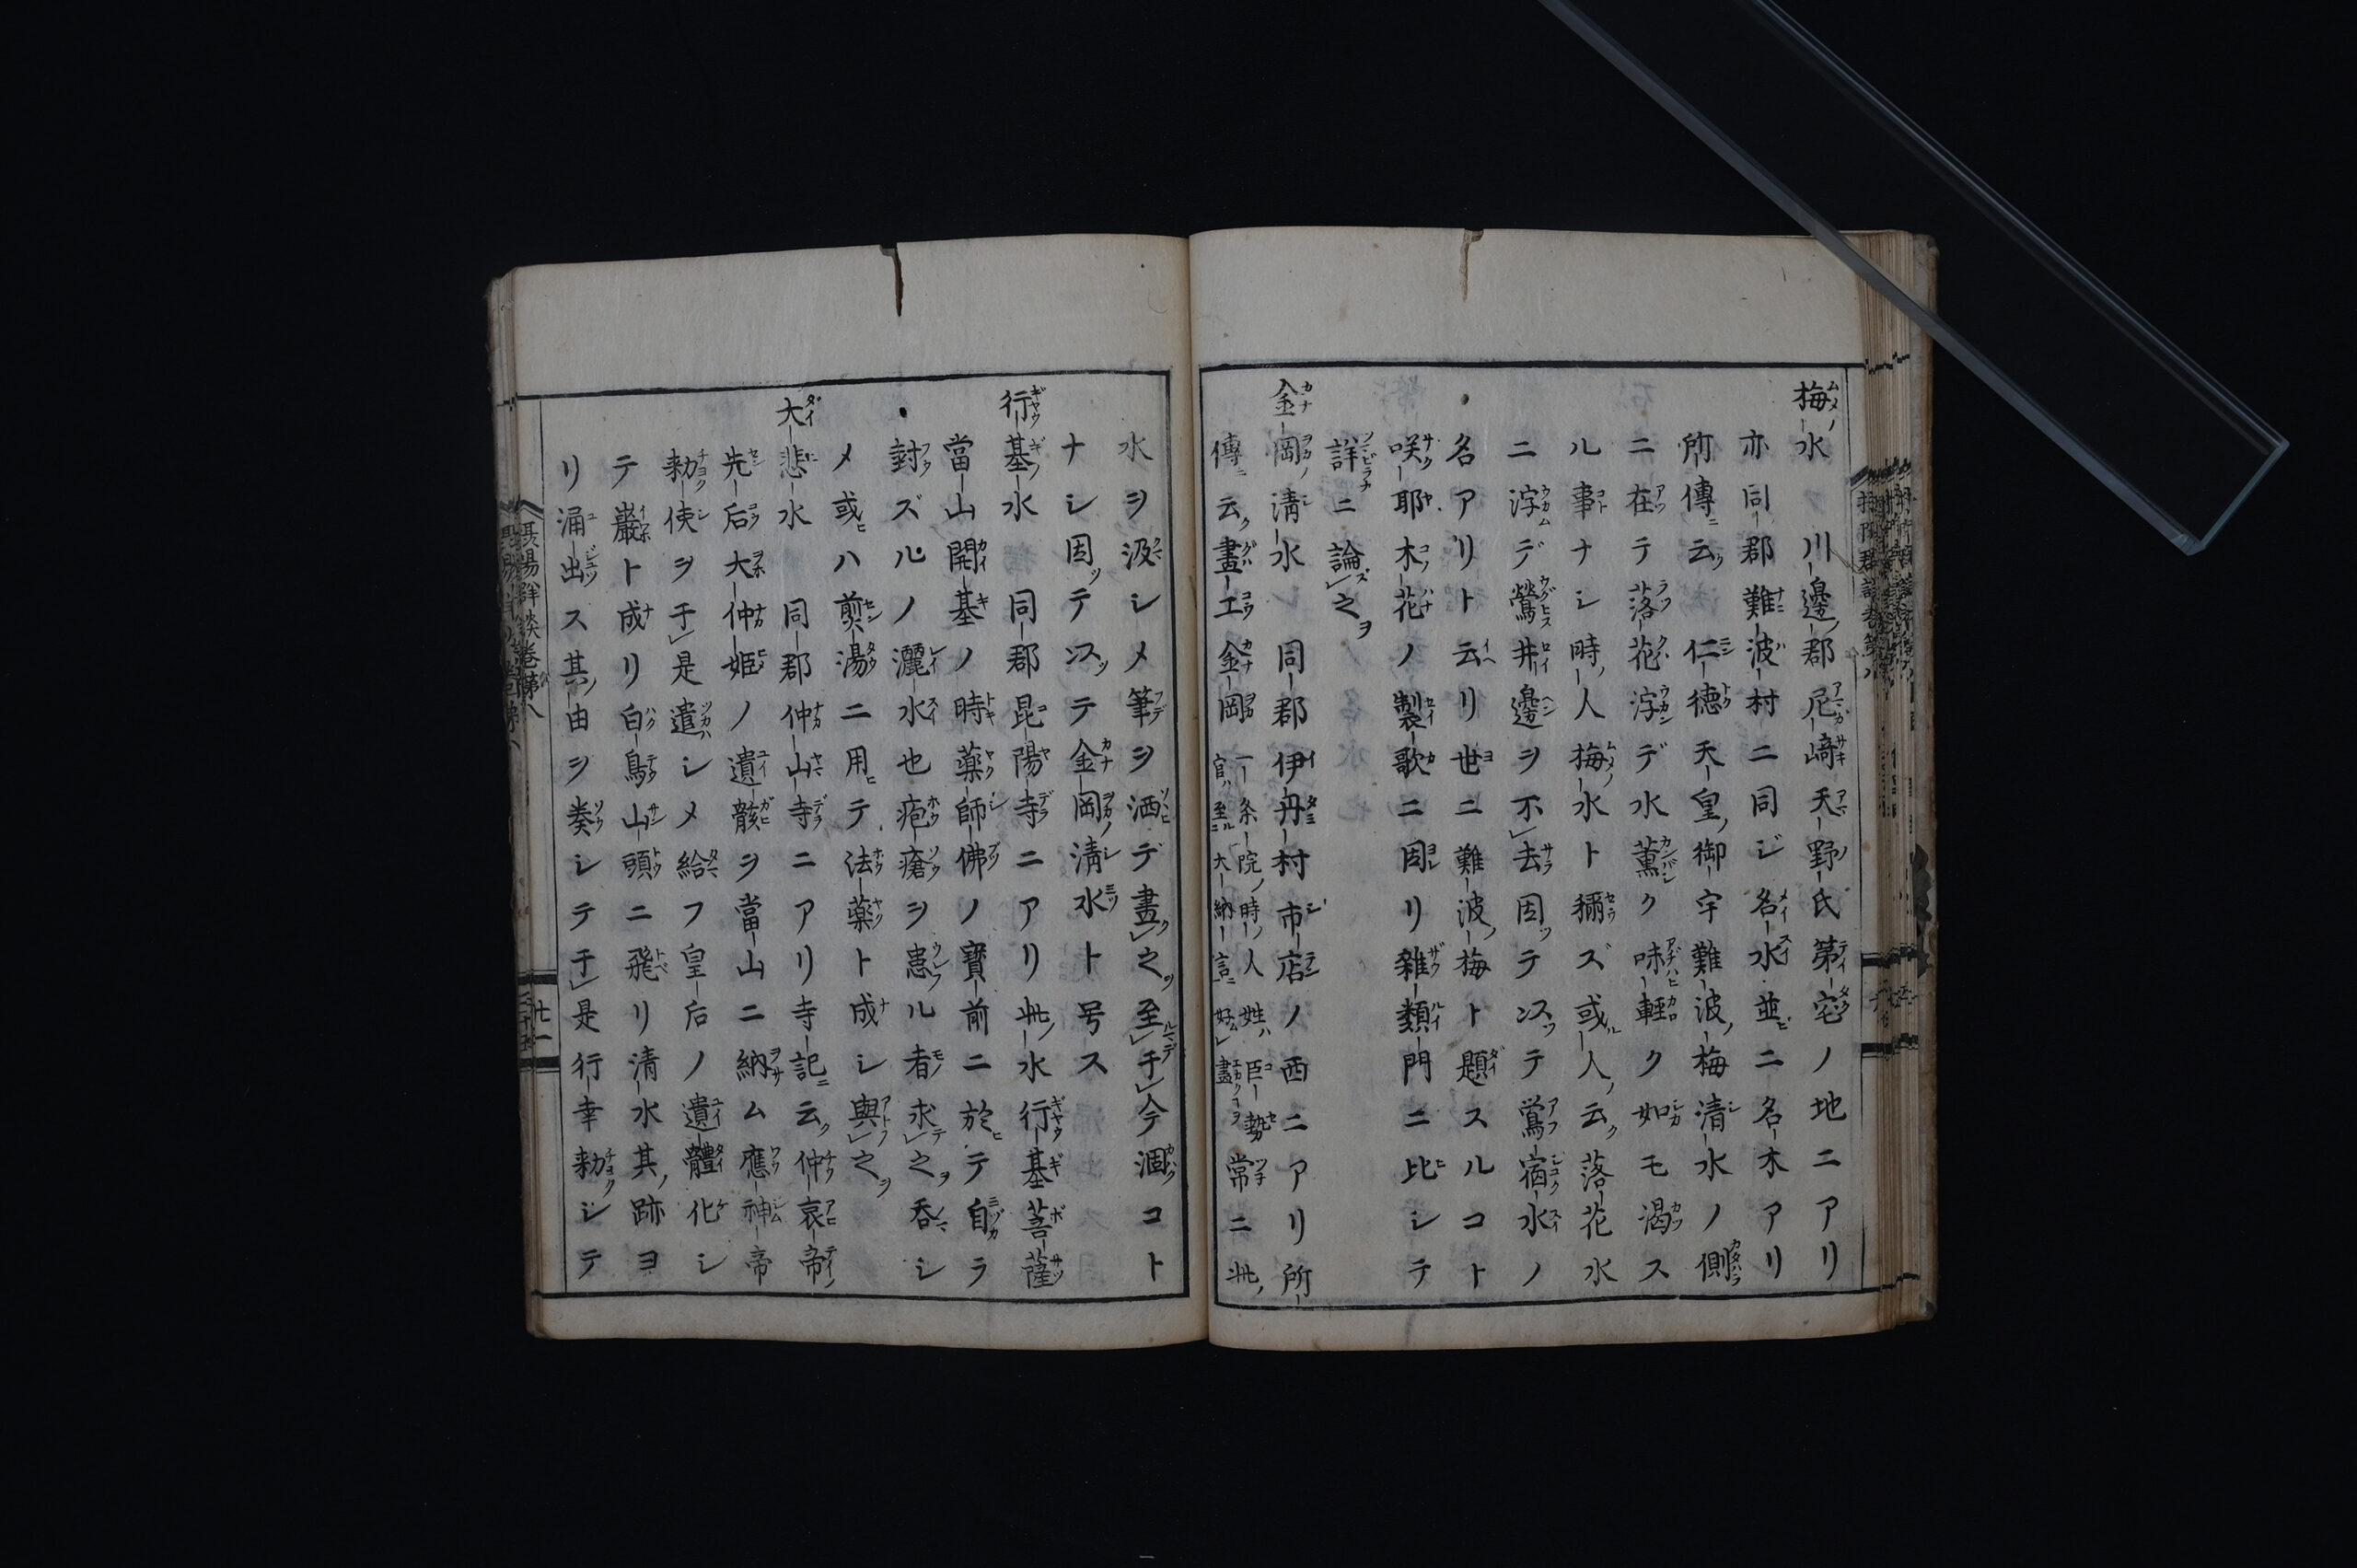 梅水　川邊郡尼﨑天野氏第宅ノ地ニアリ
亦同郡難波村ニ同ジ名水並ニ名木アリ
所傳云　仁德天皇御宇難波梅清水ノ側
ニ在テ落花浮デ水薫ク味輕ク如モ渇ス
ル事ナシ時人梅水ト稱ズ或人云落花水
ニ浮デ鶯井邊ヲ不去因テ汲テ鶯宿水ノ
名アリト云リ世ニ難波梅ト題スルコト
咲耶木花ノ製歌ニ因リ雜類門ニ比シテ
詳ニ論之
金岡淸水　同郡伊丹村市店ノ西ニアリ所
傳云畫工金岡一条院時人姓ハ巨勢官至大納言好畫常ニ此
水ヲ汲シメ筆ヲ洒デ畫之至于今涸コト
ナシ因テ汲テ金岡淸水ト号ス
行基水　同郡昆陽寺ニアリ此水行基菩薩
當山開基ノ時藥師佛ノ寳前ニ於テ自ラ
封ズルノ灑水也疱瘡ヲ患ル者求之呑シ
メ或ハ煎湯ニ用テ法藥ト成シ與之
大悲水　同郡仲山寺ニアリ寺記云仲哀帝
先后大仲姬ノ遺骸ヲ當山ニ納ム應神帝
勅使ヲ于是遣シメ給フ皇后ノ遺體化シ
テ巖ト成リ白鳥山頭ニ飛リ清水其跡ヨ
リ涌出ス其由ヲ奏シテ于是行幸勅シテ
攝陽群談卷第八
廿一